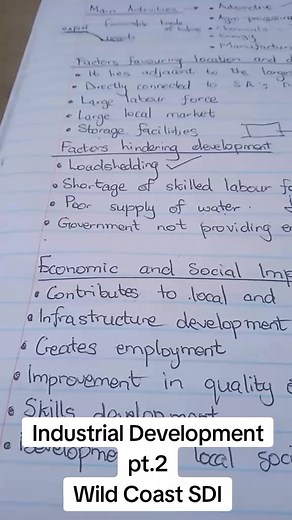 Main Activities
• Automotive
export
Favourable
• Agro processing
• Chemicals
goods
• Energy
• Manufactur
Factors favouring location and d
• It lies adjacent to the larges
• Directly connected to S.A's
• Large labour force
• Large local market
• Storage facilities
Factors hindering development
• Loadshedding
• Shortage of skilled labour fo
• Poor supply of water.
• Government not providing en
Economic and Social Imp
• Contributes to local and
• Infrastructure development
• Creates employment
• Improvement in quality
• Skills development
• Developme local soci
Industrial Development
pt.2
Wild Coast SDI